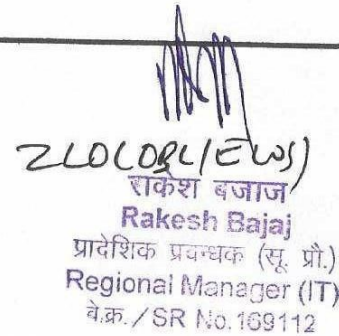 राकेश बजाज
Rakesh Bajaj
प्रादेशिक प्रबन्धक (सू. प्रौ.)
Regional Manager (IT)
वे.क्र. / SR No.169112